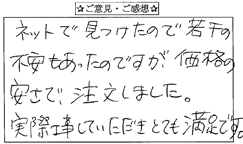 ☆ご意見・ご感想☆
ネットで見つけたので若干の
不安もあったのですが価格の
安さで、注文しました。
実際工事していただきとても満足です。